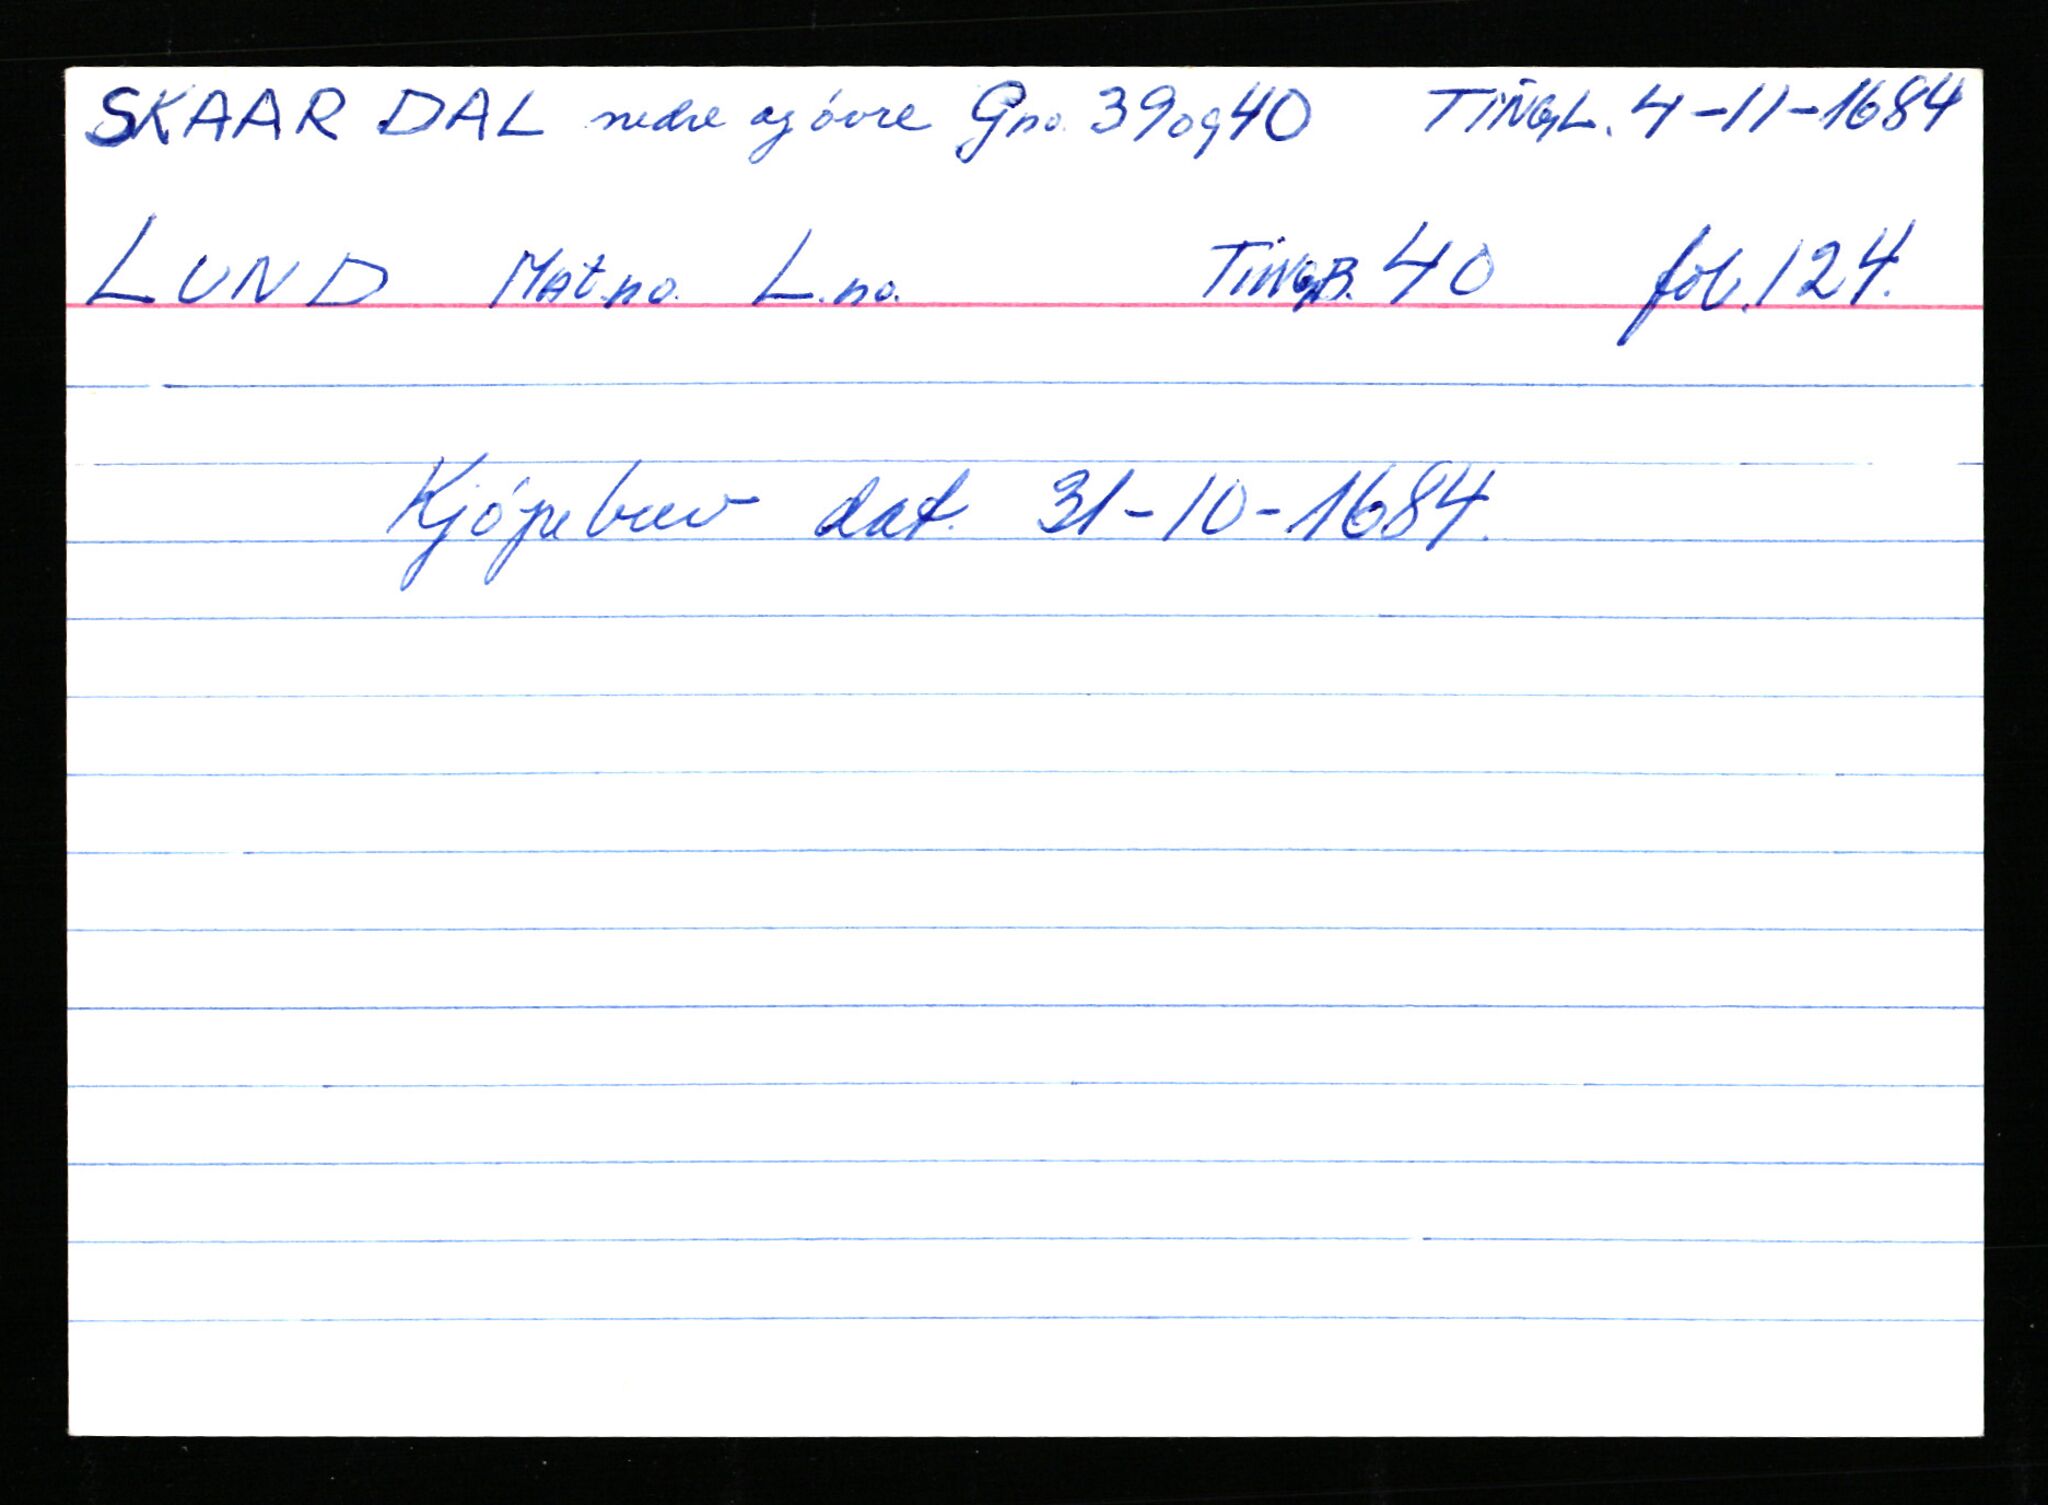 SKAARDAL nedre og óvre Gno. 39 og 40 TINGL. 4-11-1684
LUND Mat.no. L.no. TINGB. 40 fol. 124.
Kjópebrev dat. 31-10-1684.